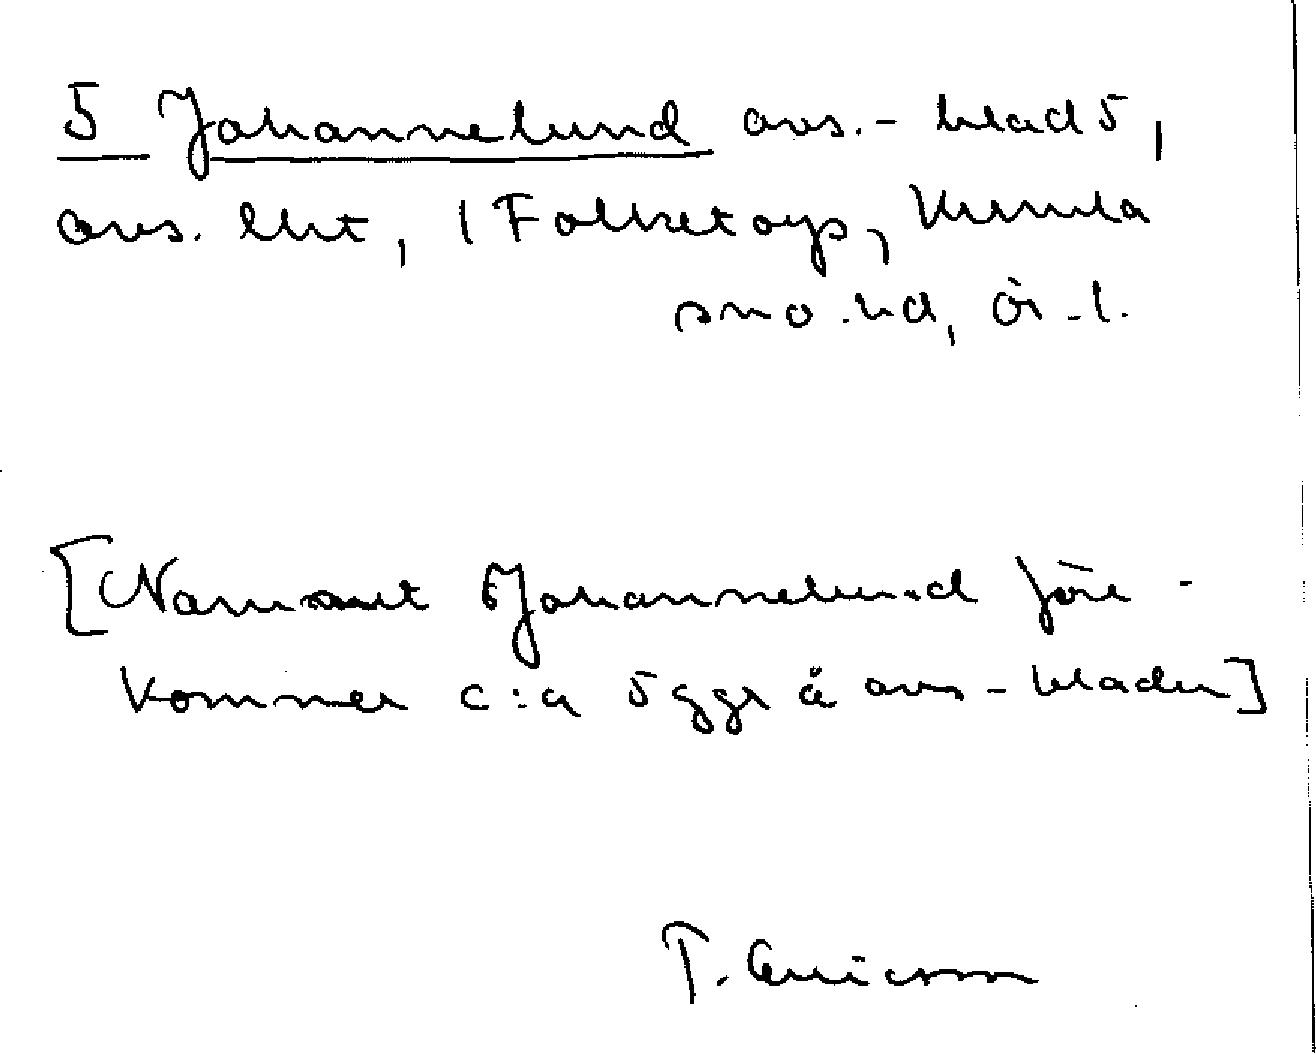 5 Johannelund avs.- blad 5,
avs. lht, 1 Folketorp, Kumla
sn o. hd, ör. l.
[Namnet Johannelund före-
kommer c:a 5 ggr å avs-bladen]
T. Ericsson